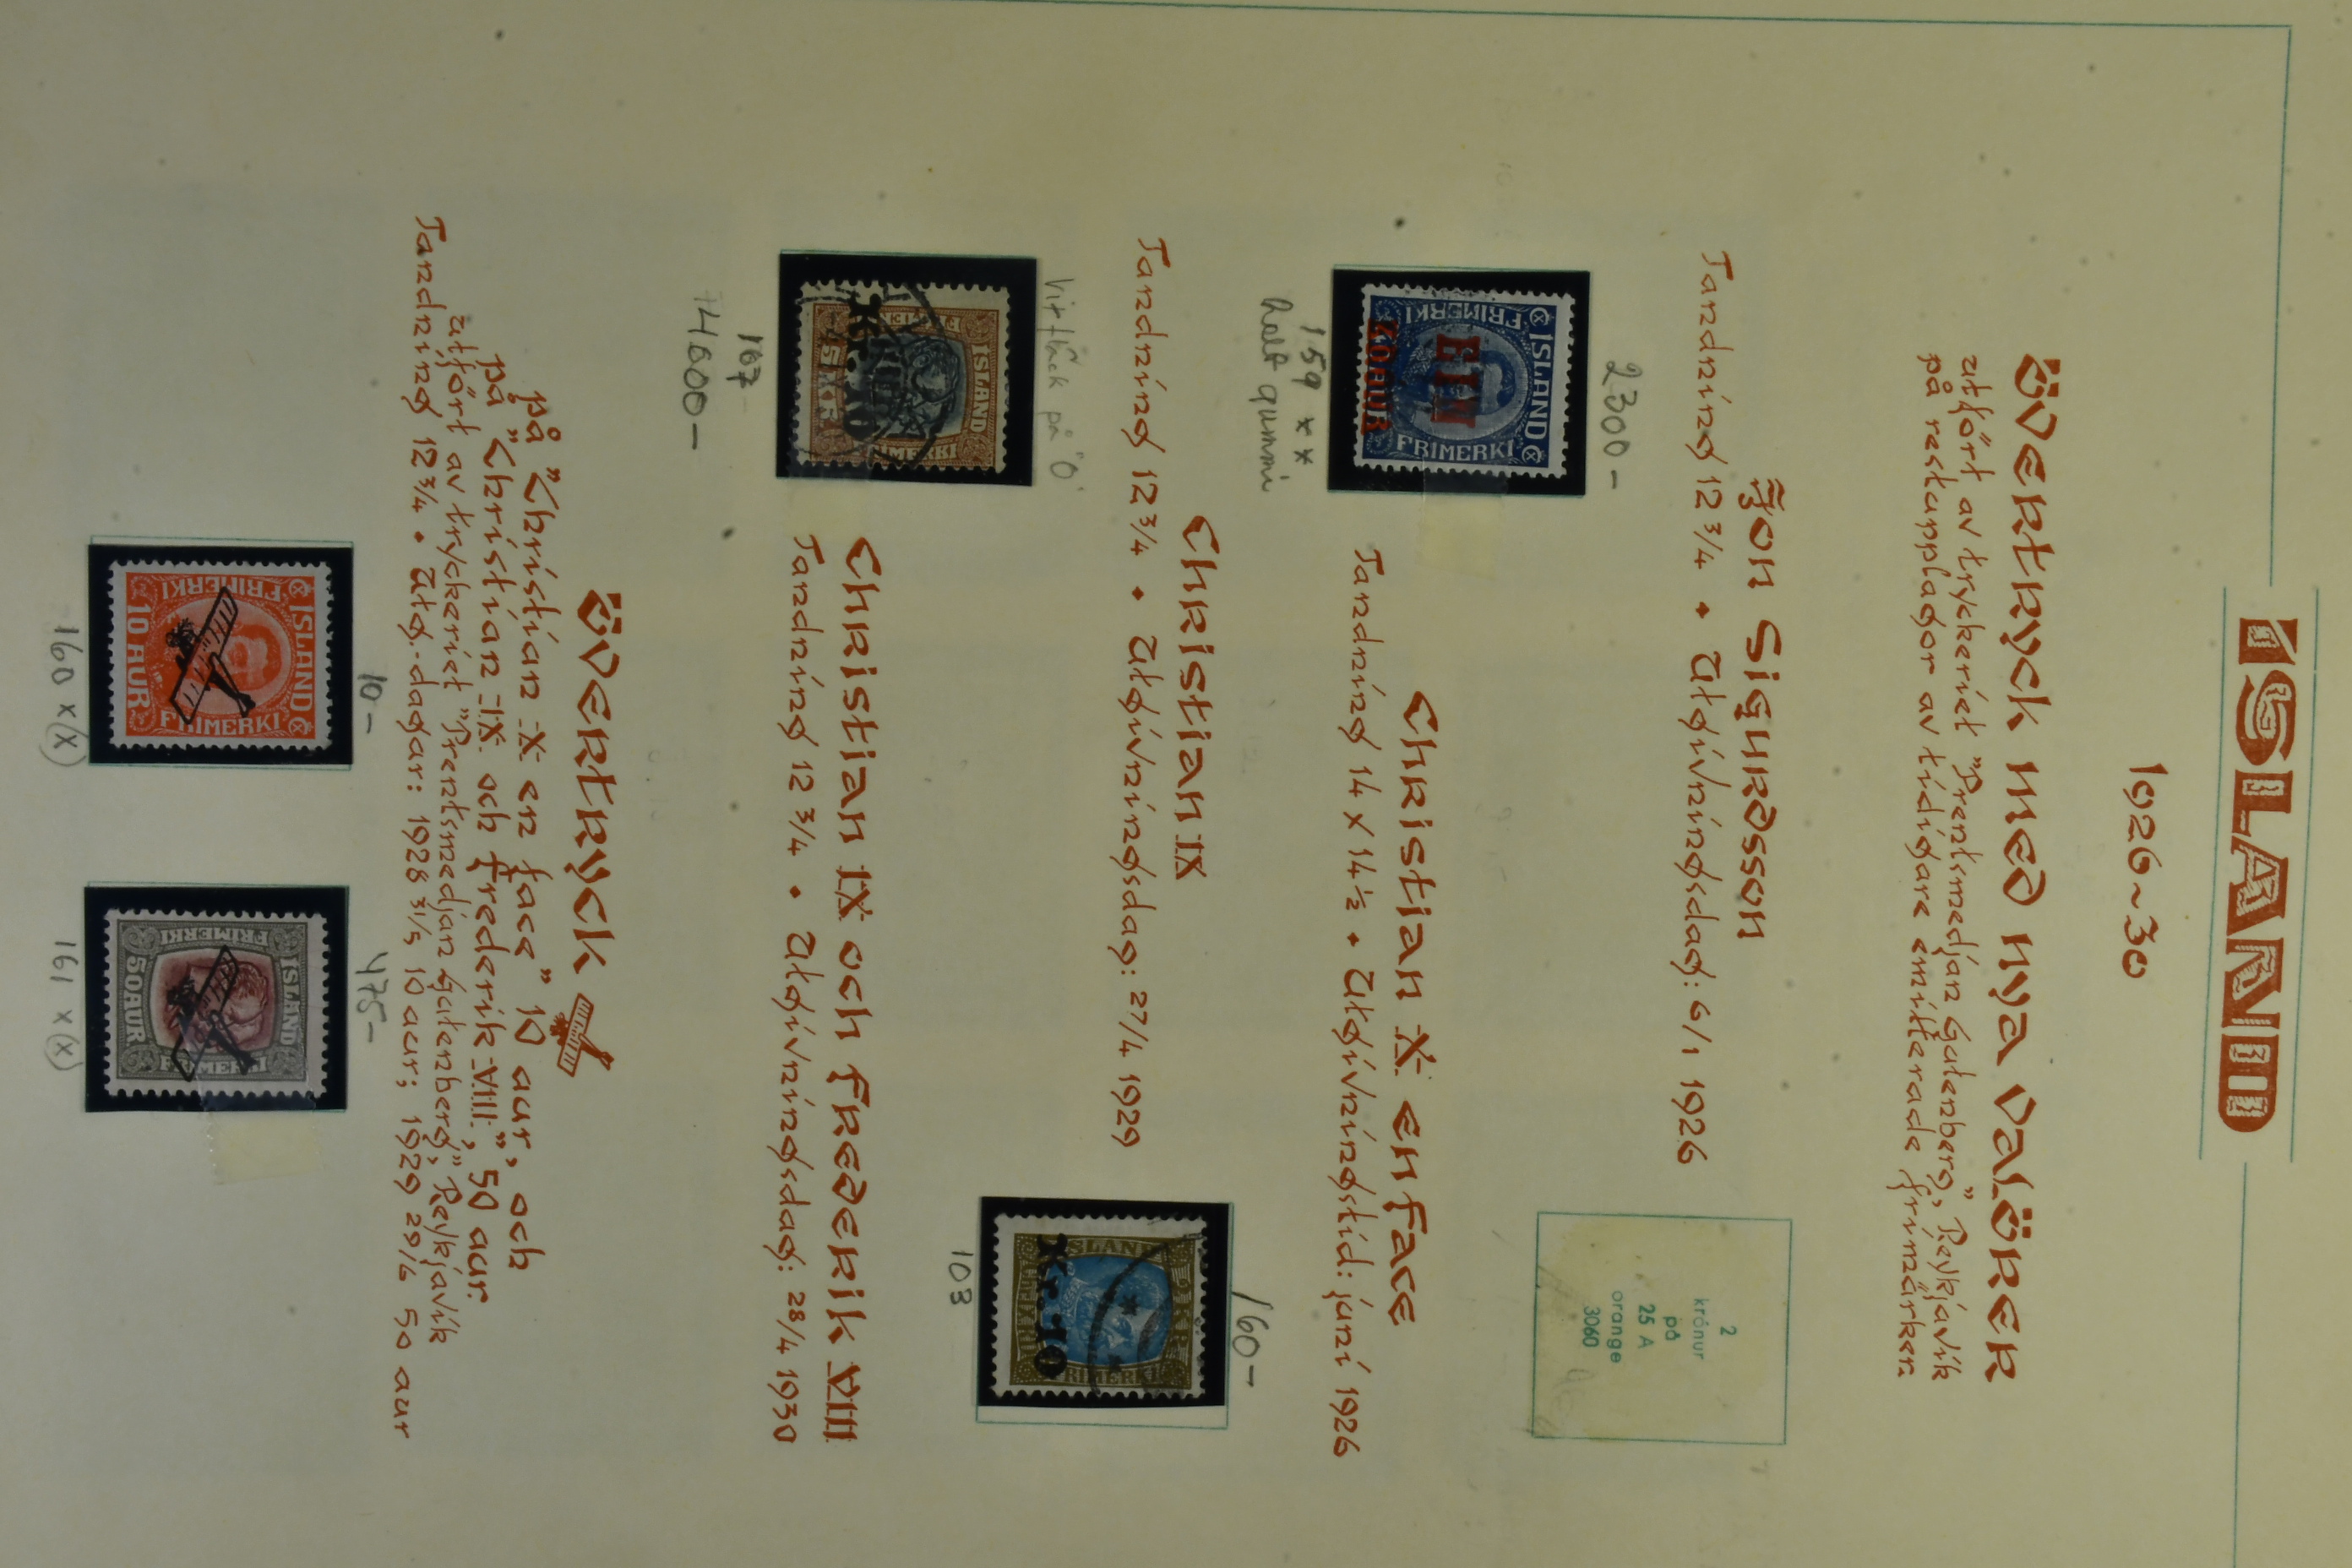 ISLAND
1926~30
Övertryck med nya valörer
utfört av tryckeriet "Prentsmedjan Gutenberg", Reykjavik
på restupplagor av tidigare emitterade frimärken
Jon Sigurdsson
Tandning 12 3/4 • Utgivningsdag: 6/1 1926
2300-
ISLAND
FRIMERKI
FRIMERKI
EIN
KRONA
40 AUR
159 xx
helt gummi
2
krónur
på
25 A
orange
3060
Christian X en face
Tandning 14 x 14 1/2 • Utgivningstid: juni 1926
Christian IX
Tandning 12 3/4 • Utgivningsdag: 27/4 1929
Vit fläck på "0"
ISLAND
FRIMERKI
Kr. 10
5 KR 5
167
74600-
160-
ISLAND
FRIMERKI
Kr. 10
103
Christian IX och Frederik VIII
Tandning 12 3/4 • Utgivningsdag: 28/4 1930
Övertryck
på "Christian X en face" 10 aur, och
på "Christian IX och Frederik VIII", 50 aur.
utfört av tryckeriet "Prentsmedjan Gutenberg", Reykjavik
Tandning 12 3/4 • Utg. dagar: 1928 31/5 10 aur; 1929 29/6 50 aur
10-
ISLAND
FRIMERKI
FRIMERKI
10 AUR
160 x(x)
475-
ISLAND
FRIMERKI
FRIMERKI
50 AUR
161 x(x)